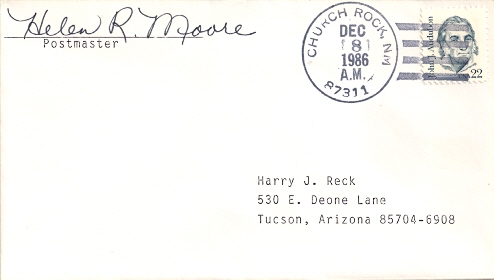 Helen R. Moore
Postmaster
CHURCH ROCK, NM
DEC
8
1986
A.M.
87311
John J. Audubon
22
Harry J. Reck
530 E. Deone Lane
Tucson, Arizona 85704-6908